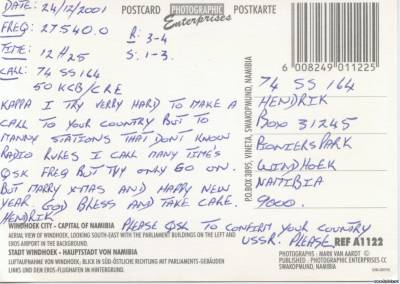 DATE: 24/12/2001
FREQ: 27540.0
R: 3-4
TIME: 12H25
S: 1-3.
CALL: 74 SS 164
50 KCB/CRE
KAPPA I TRY VERRY HARD TO MAKE A
CALL TO YOUR COUNTRY BUT TO
MANNY STATIONS THAT DONT KNOW
RADIO RULES I CALL MANY TIME'S
QSK FREQ BUT THY ONLY GO ON.
BUT MARRY X-MAS AND HAPPY NEW
YEAR. GOD BLESS AND TAKE CARE.
HENDRIK
PLEASE QSK TO CONFIRM YOUR COUNTRY
USSR. PLEASE
POSTCARD
PHOTOGRAPHIC
Enterprises
POSTKARTE
6 008249 011225
74 SS 164
HENDRIK
BOX 31245
PIONIERSPARK
WINDHOEK
NAMIBIA
9000.
P.O.BOX 3895, VINETA, SWAKOPMUND, NAMIBIA
WINDHOEK CITY - CAPITAL OF NAMIBIA
AERIAL VIEW OF WINDHOEK, LOOKING SOUTH-EAST WITH THE PARLIAMENT BUILDINGS ON THE LEFT AND
EROS AIRPORT IN THE BACKGROUND.
STADT WINDHOEK - HAUPTSTADT VON NAMIBIA
LUFTAUFNAHME VON WINDHOEK, BLICK IN SÜD-ÖSTLICHE RICHTUNG MIT PARLAMENTS-GEBÄUDEN
LINKS UND DEN EROS-FLUGHAFEN IN HINTERGRUND.
REF A1122
PHOTOGRAPHS - MARK VAN AARDT ©
PUBLISHED : PHOTOGRAPHIC ENTERPRISES CC
SWAKOPMUND, NAMIBIA